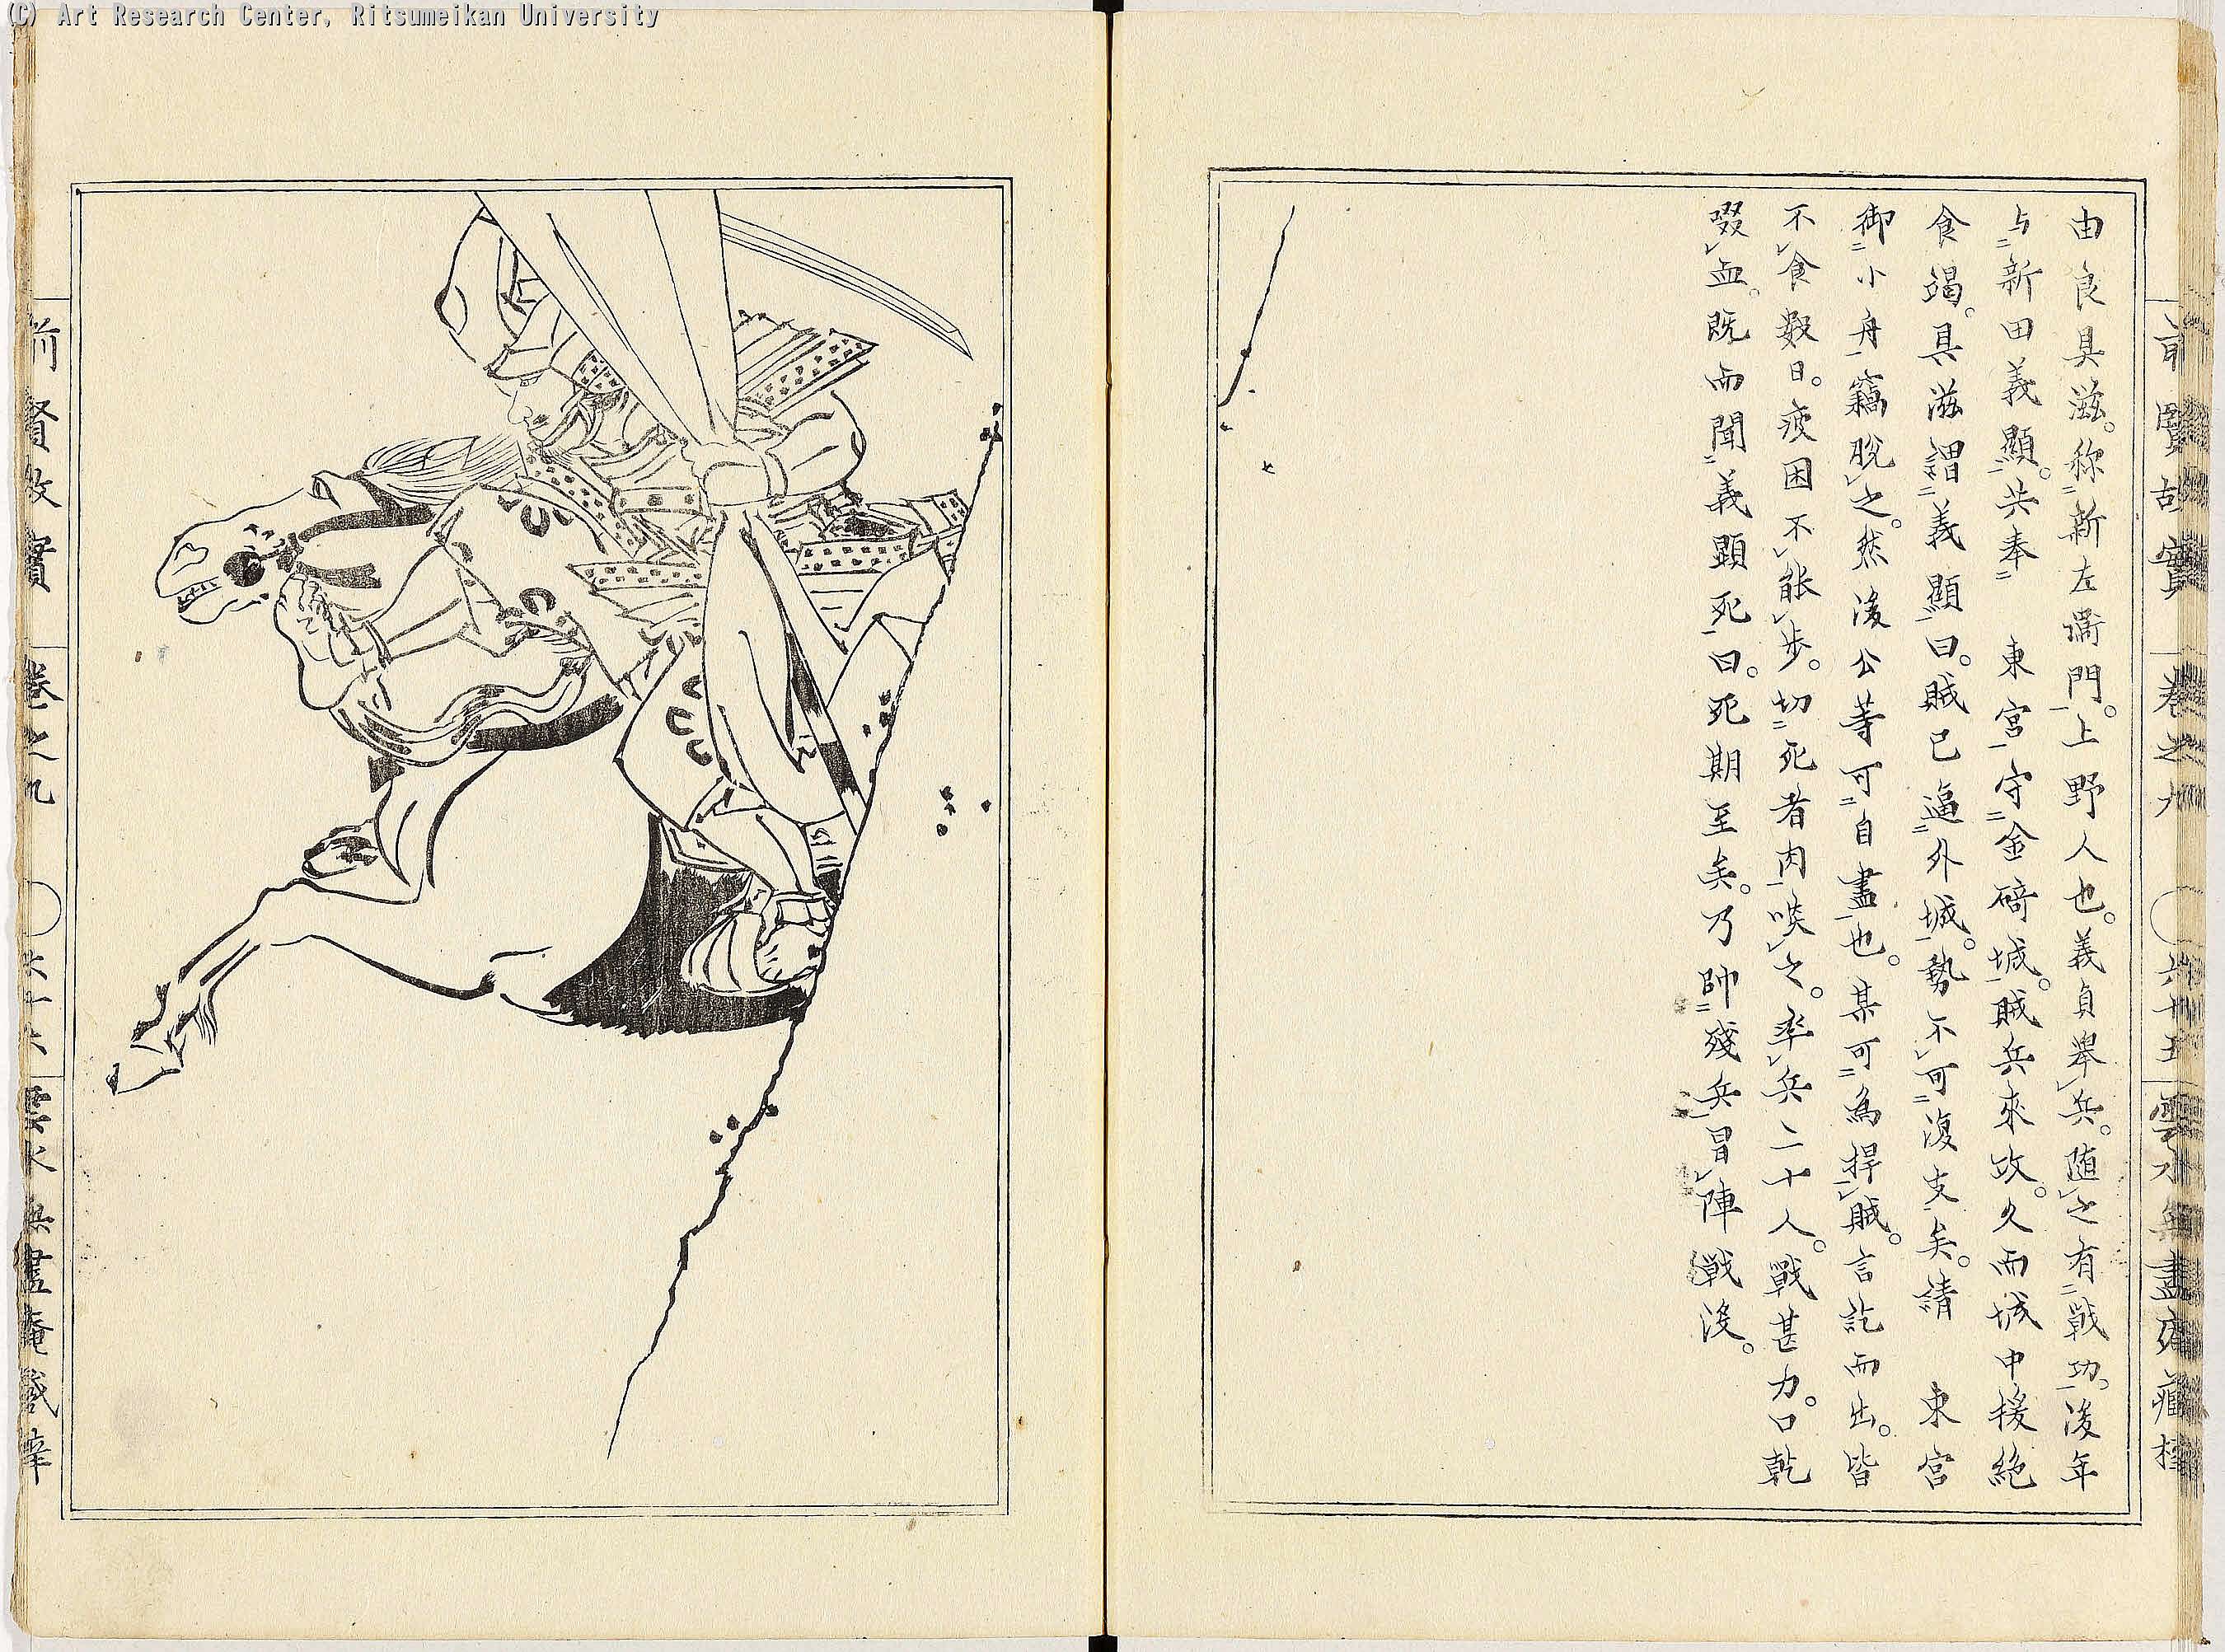 (C) Art Research Center, Ritsumeikan University
由良具滋。称新左衛門。上野人也。義貞舉兵。随之有戰功。後年
与新田義顯。共奉 東宮守金碕城。賊兵來攻。久而城中援絶
食竭。具滋謂義顯曰。賊已逼外城。勢不可復支矣。請 東宮
御小舟竊脱之。然後公等可自盡也。某可為捍賊。言訖而出。皆
不食數日。疲困不能歩。切死者肉啖之。率兵二十人。戰甚力。口乾
啜血。既而聞義顕死曰。死期至矣。乃帥殘兵冒陣戦没。
前賢故實 卷之九 六十五 雲水無盡庵藏梓
前賢故實 卷之九 六十六 雲水無盡庵藏梓